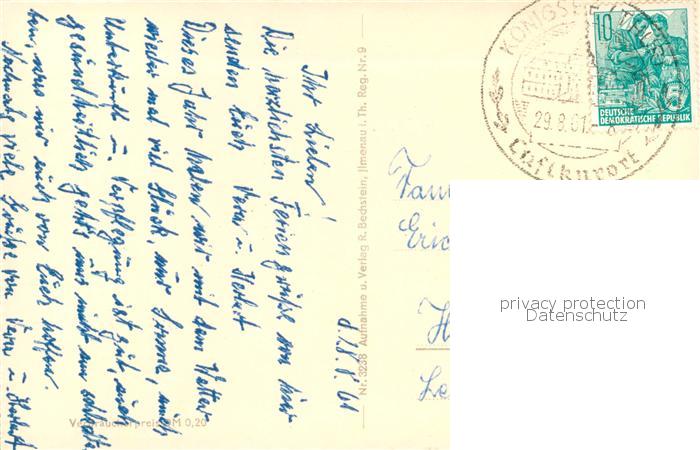 d. 18. 8. 61
Ihr Lieben!
Die herzlichsten Feriengrüße von hier
senden Euch Vera u. Herbert
Dieses Jahr haben wir mit dem Wetter
wieder mal viel Glück, nur Sonne, auch
Unterkunft u. Verpflegung ist gut, auch
gesundheitlich geht's uns nicht am schlechte-
sten, was wir auch von Euch hoffen.
Nochmals viele Grüße von Vera u. Herbert
Verbraucherpreis DM 0,20
Nr. 3238 Aufnahme u. Verlag R. Bechstein, Ilmenau i. Th. Reg. Nr. 9
KÖNIGSEE / THÜR
29.8.61
Luftkurort
10
DEUTSCHE
DEMOKRATISCHE REPUBLIK
5
Fam
Eric
H
privacy protection
Datenschutz